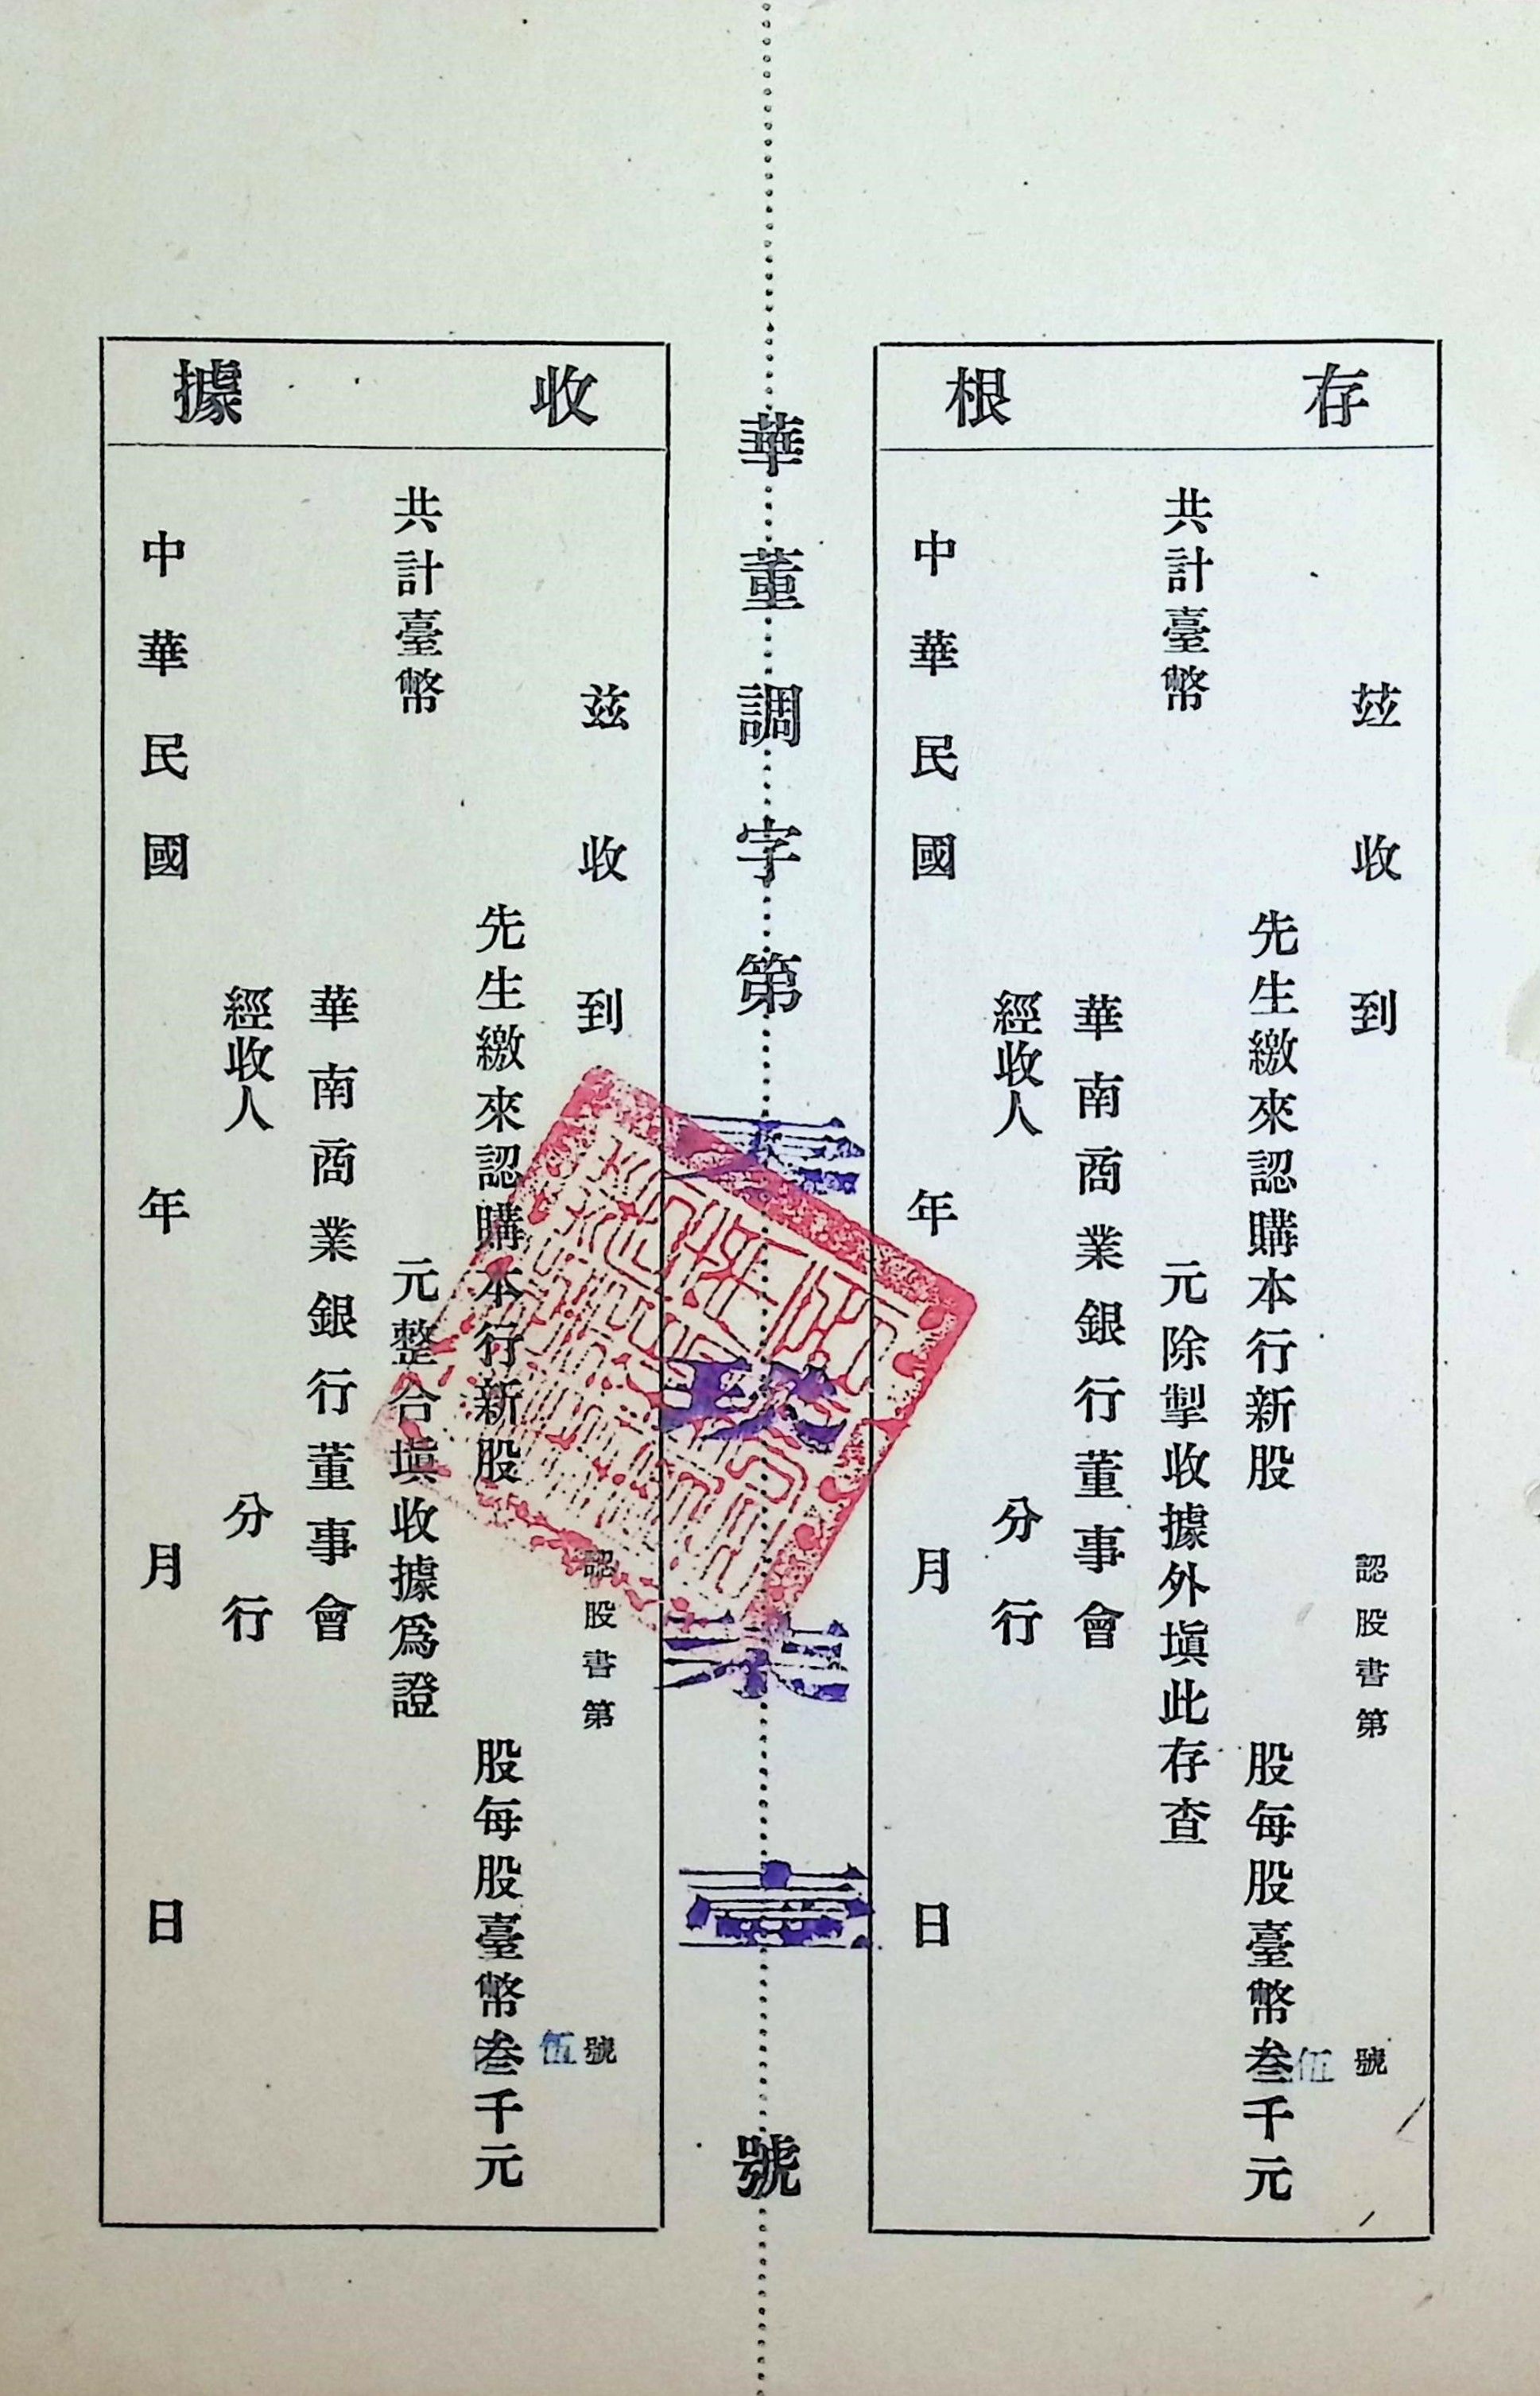 存根
茲收到
認股書第 號
先生繳來認購本行新股 股每股臺幣叁千元
伍
共計臺幣 元除掣收據外塡此存查
華南商業銀行董事會
經收人 分行
中華民國 年 月 日
華董調字第 玖 壹號
收據
茲收到
認股書第 號
伍
先生繳來認購本行新股 股每股臺幣叁千元
共計臺幣 元整合塡收據爲證
華南商業銀行董事會
經收人 分行
中華民國 年 月 日